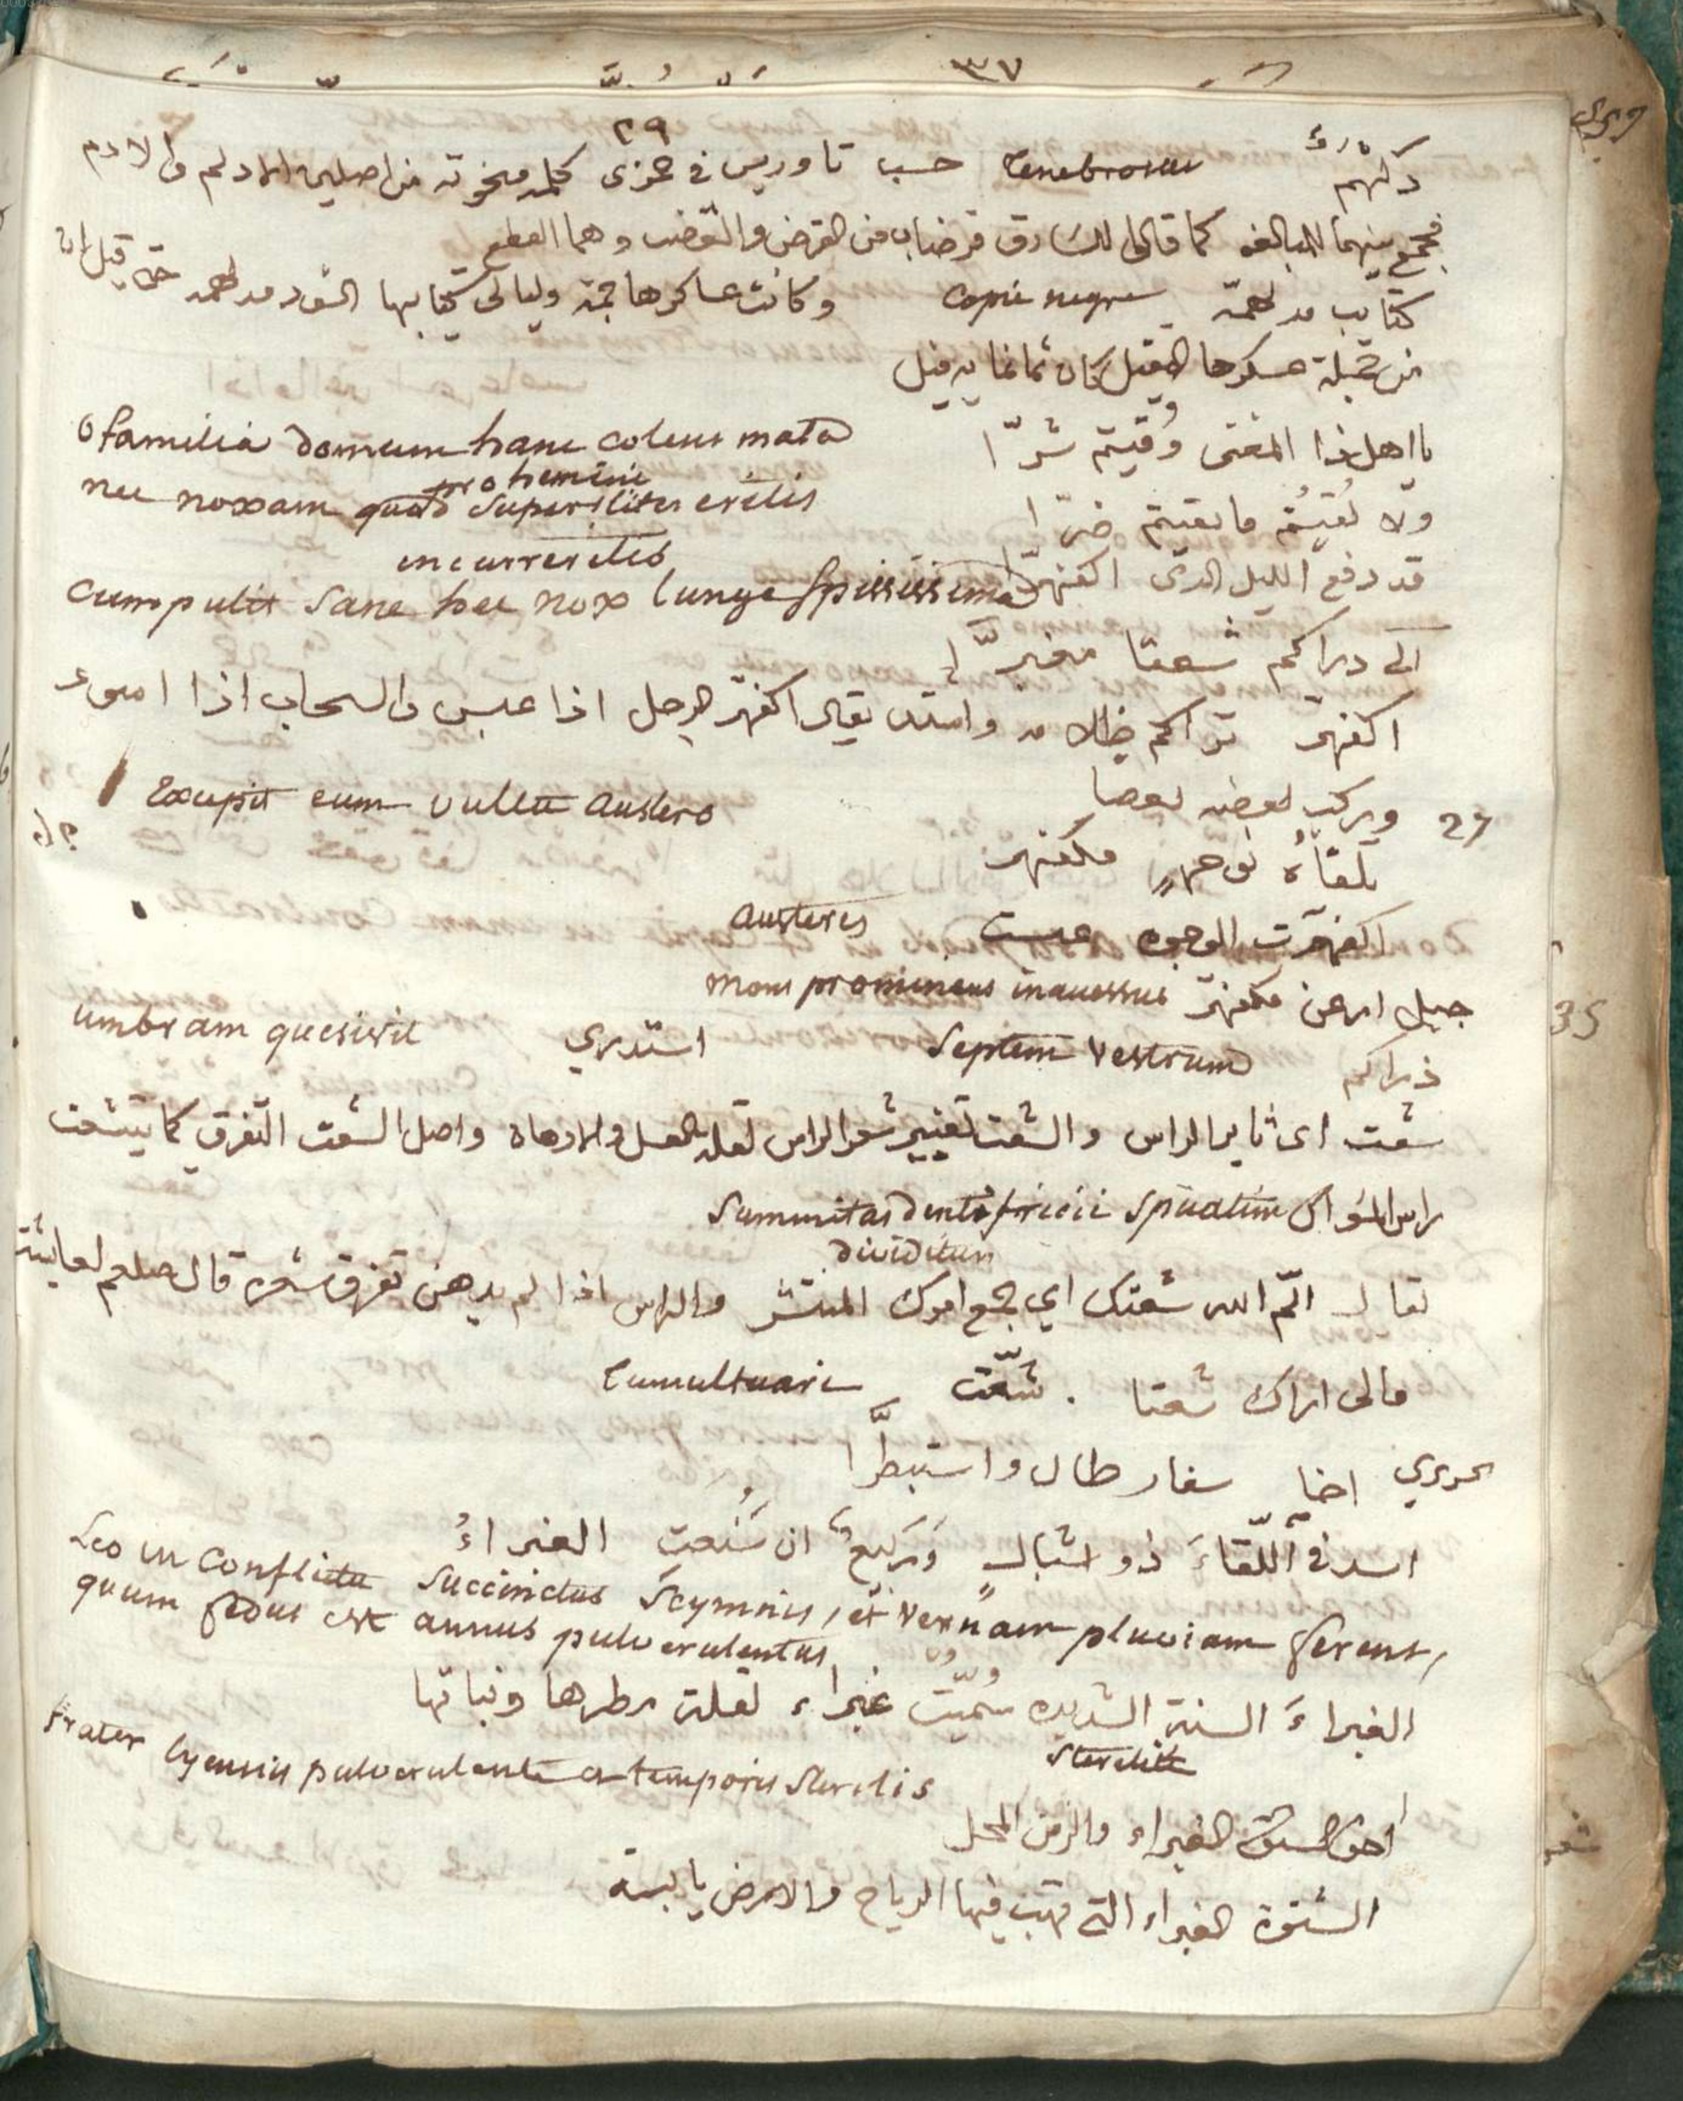 ٣٧
٢٩
دلهم tenebrosus حسب تاوريس في حمزى كلمة منحوتة من اصلين الادلم والادم
فجمع بينهما للمبالغه كما قالوا للسارق قرضاب من القرض والقضب وهما القطع
كتايب مدلهمة copie negre وكانت عساكرها جمة وليالي كتايبها السود مدلهمة حتى قيل ان
من جملة عسكرها الثقيل كان ثمانماية فيل
يا اهل ذا المغنى وُقيتم شرّا
O familia domum hanc colens mala
ولا لقيتُم ما بقيتم ضرّا
nec noxam quod superstites eritis
pro hemine
incurreretis
قد دفع الليل الذي اكفهرّا
Cumpulit sane hec nox lunge spississima
الى دراكم شعثا مغبرّا
اكفهر تراكم ظلامه واشتد يقال اكفهر الرجل اذا عبس والسحاب اذا اسود
27 ويركب بعضه بعضا
Excepit eum vultu austero
تلقاه بوجهٍ مكفهر
اكفهرّت الوجوه عبست austeres
جبل ارعن مكفهرّ mons prominens inacessus
ذراكم Septem vestrum استذري umbram quesivit
35
شعث اى ثاير الراس والشعث تغيير شعر الراس لقلة الغسل والادهان واصل الشعث التفرق كما يتشعث
راس المسواك Summitas dentifricii spuatim
dividitur
يقال الّم الله شعثك اي جمع امرك المنتشر والراس اذا لم يدهن تفرق شعره قال صلعم لعايشة
مالى اراك شعثا . شعّث tumultuari
حريري اخا سفار طال واسبطرّا
اسد في اللّقاءَ ذو اشبالٍ وَرَبيع ان شَنُعت الغبراءُ
Leo in conflictu succinctus scymnis, et vernam pluviam ferens,
quum fedus est annus pulverulentus
الغبراءَ السنة الشديده سُمّيَتْ غبراء لقلة مطرها ونباتها
sterilitt
frater hyemis pulverulente a temporis sterilis
اخو الشتوة الغبراء والزمن المحل
الشتوة الغبراء التي تهب فيها الرياح والارض يابسة